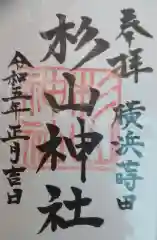 奉拝 横浜蒔田
杉山神社
令和五年正月吉日